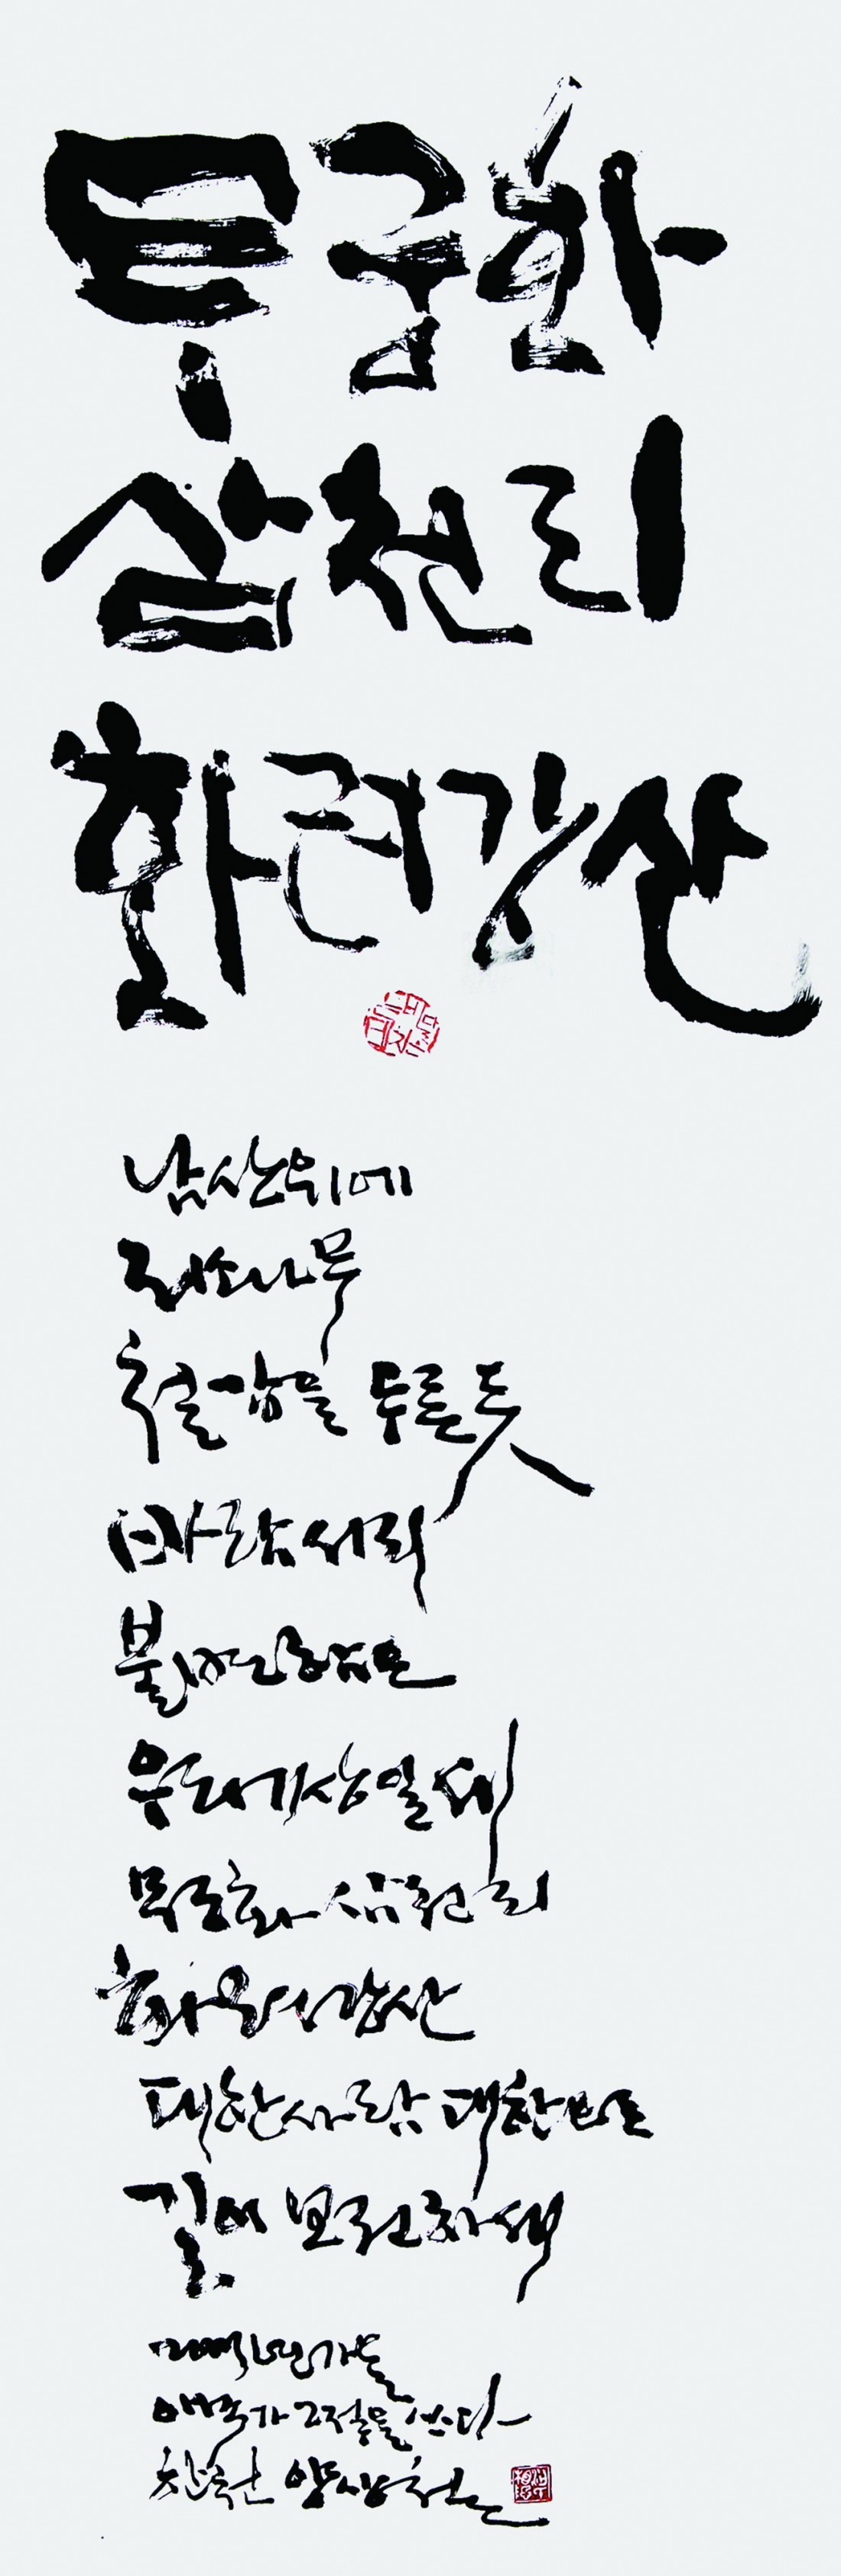 무궁화
삼천리
화려강산
남산위에
저소나무
철갑을 두른듯
바람서리
불변함은
우리기상일세
무궁화 삼천리
화려강산
대한사람 대한으로
길이 보전하세
가을
애국가 2절을 쓰다
양상철